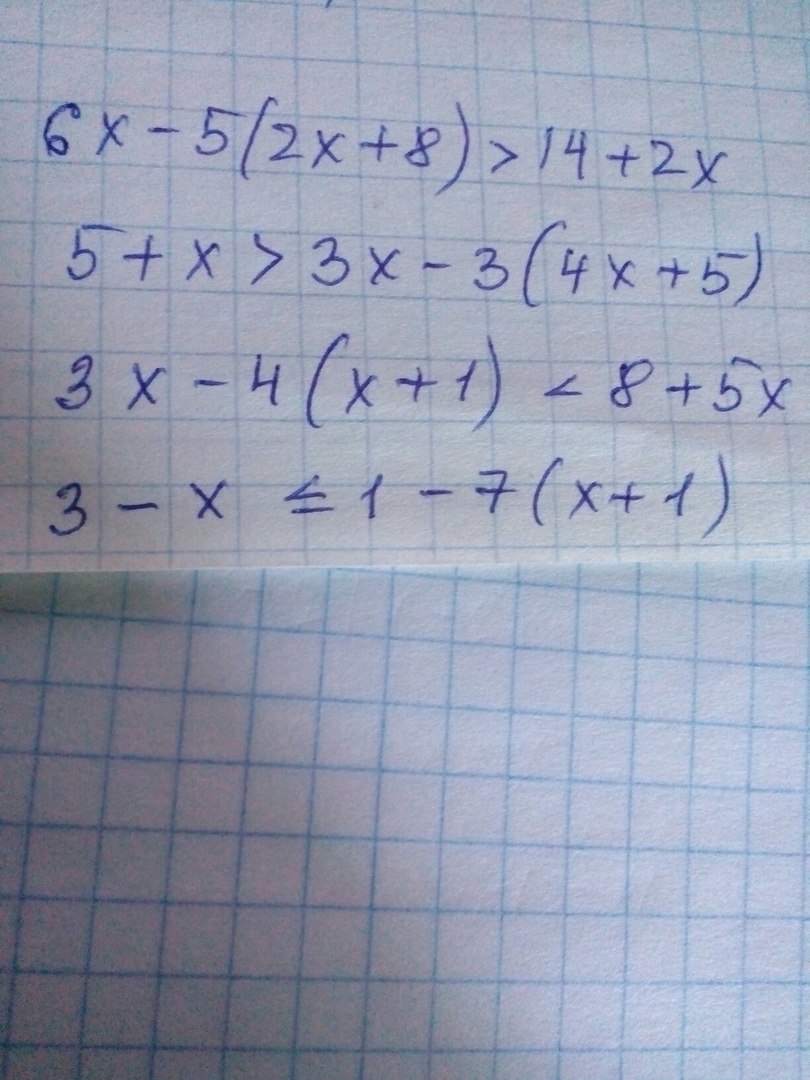 6x - 5(2x + 8) > 14 + 2x
5 + x > 3x - 3(4x + 5)
3x - 4(x + 1) < 8 + 5x
3 - x ≤ 1 - 7(x + 1)